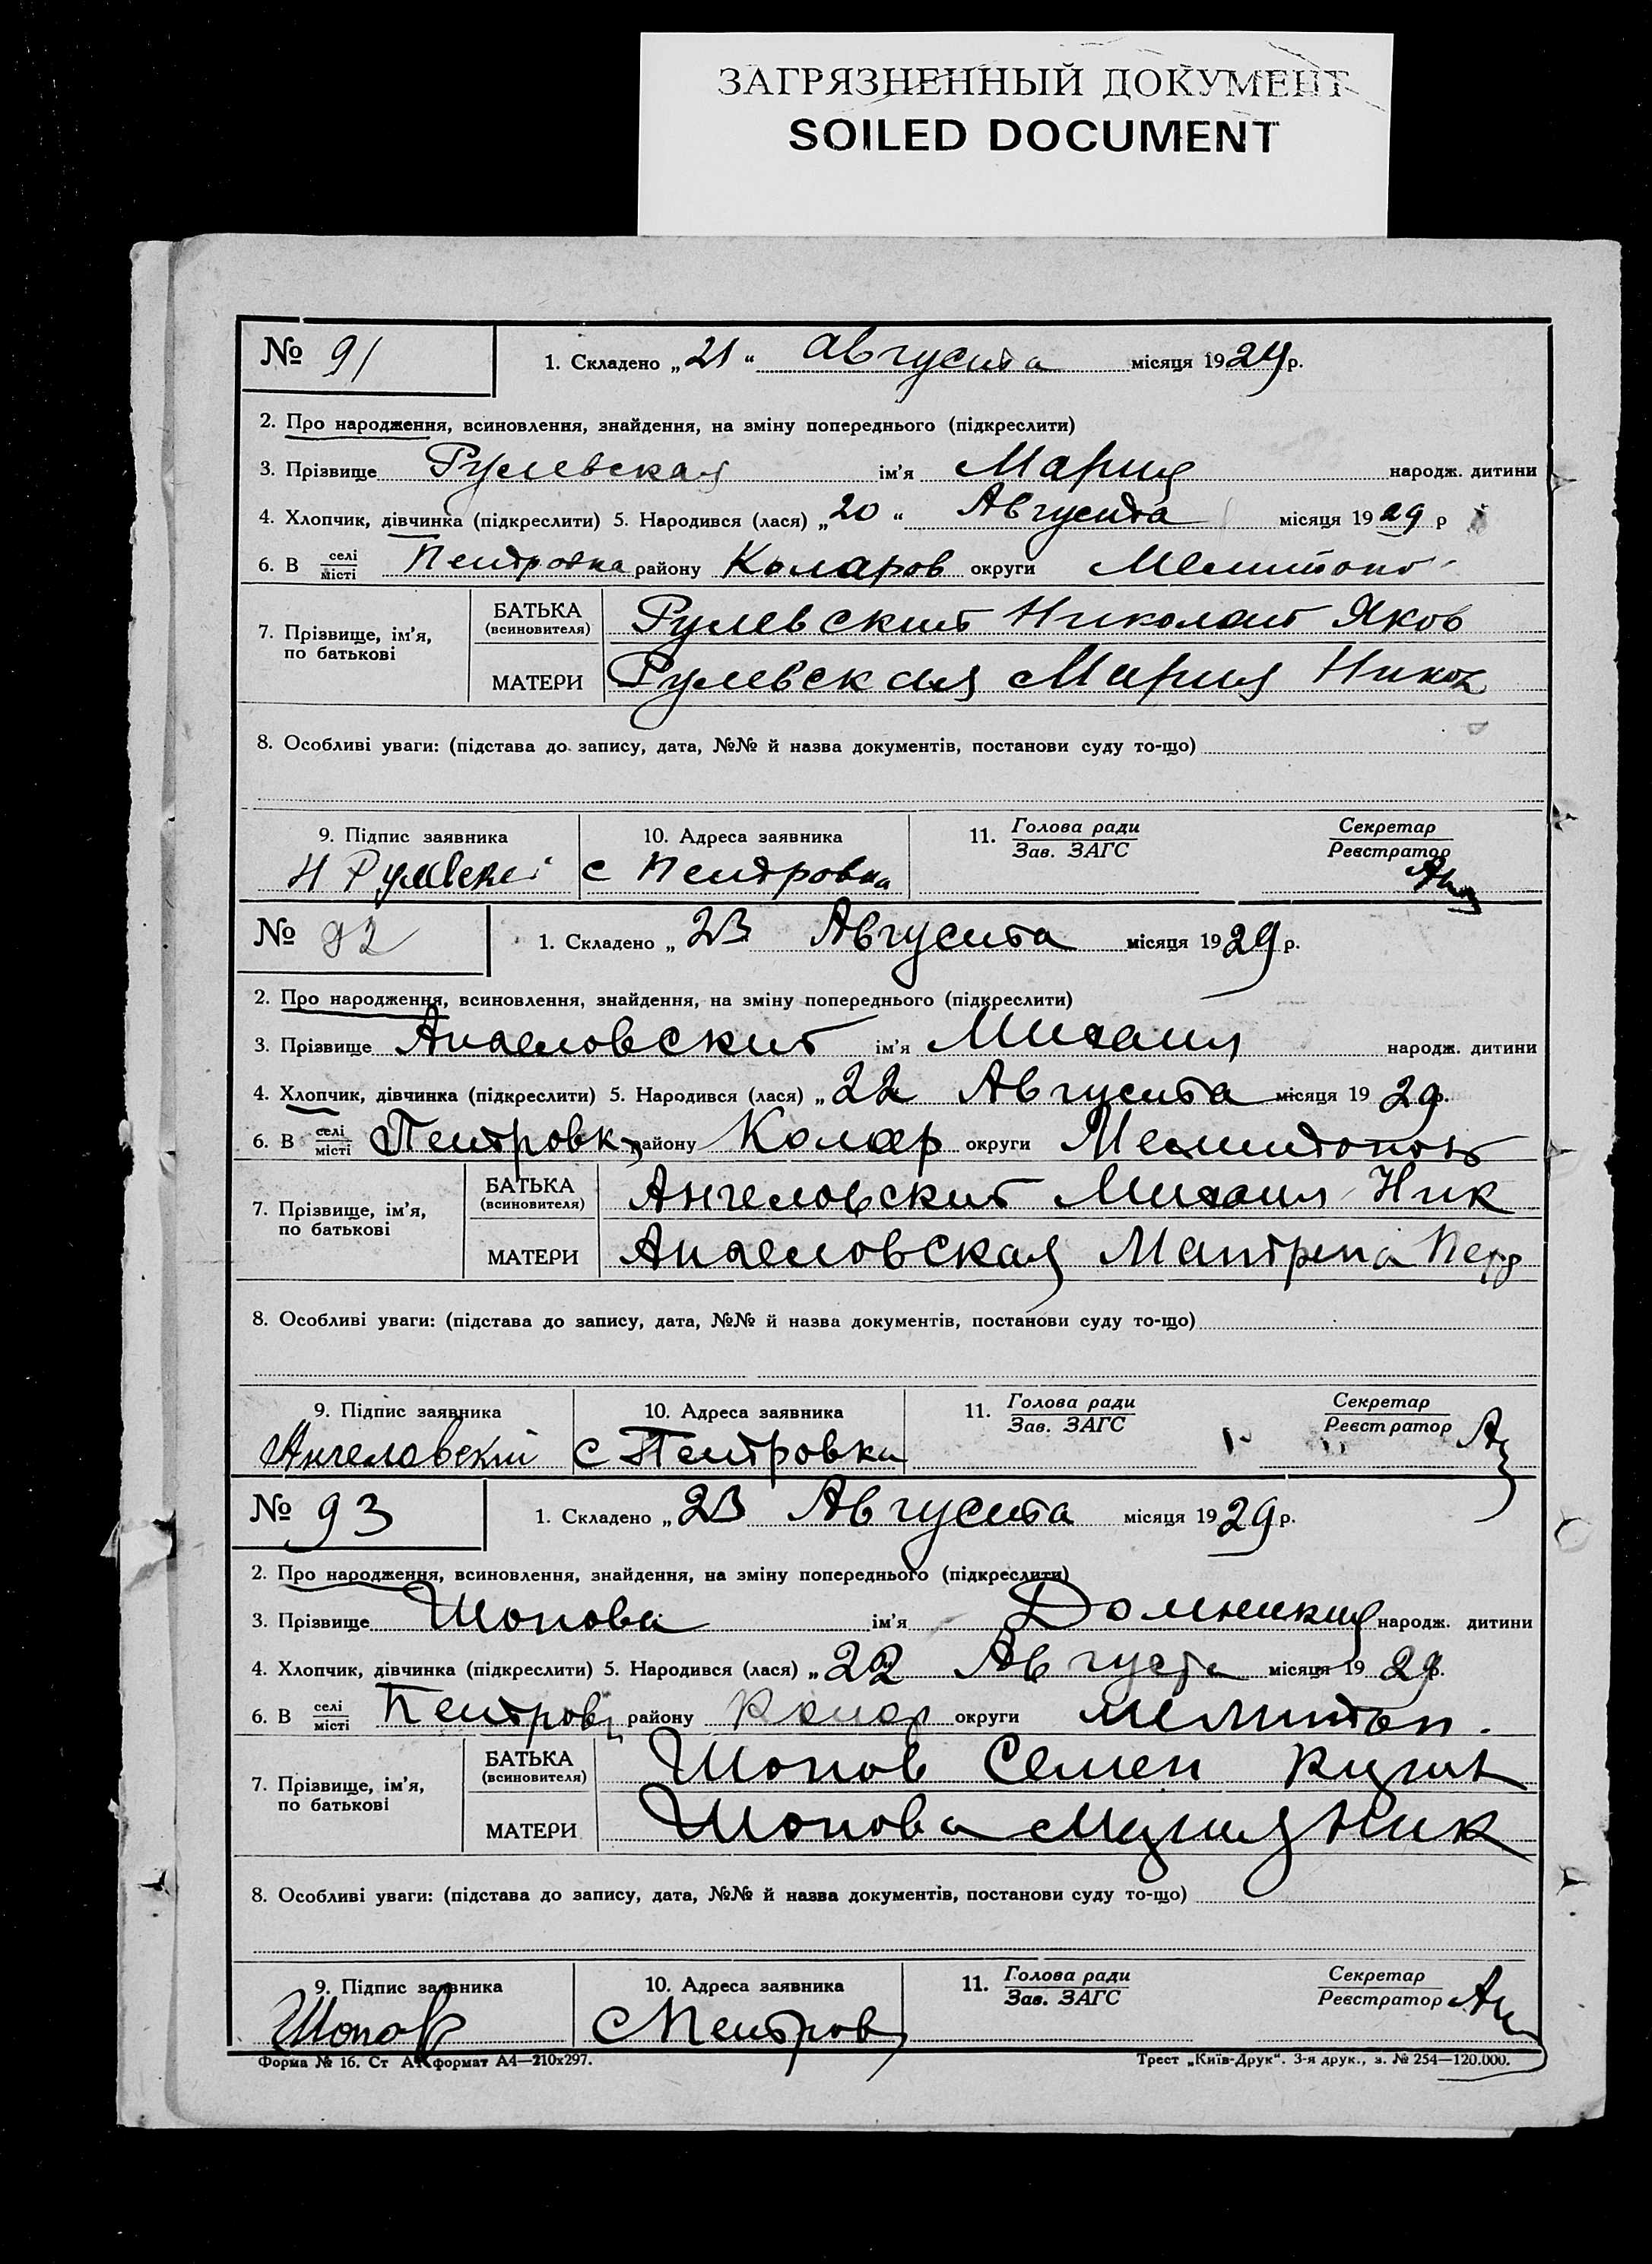 ЗАГРЯЗНЕННЫЙ ДОКУМЕНТ
SOILED DOCUMENT
№ 91 1. Складено „21“ Августа місяця 1929 р.
2. Про народження, всиновлення, знайдення, на зміну попереднього (підкреслити)
3. Прізвище Рулевская ім'я Мария народж. дитини
4. Хлопчик, дівчинка (підкреслити) 5. Народився (лася) „20“ Августа місяця 1929 р
6. В селі місті Пентровка району Коларов округи Мелитоп
7. Прізвище, ім'я, по батькові БАТЬКА (всиновителя) Рулевский Николай Яков
МАТЕРИ Рулевская Мария Никол
8. Особливі уваги: (підстава до запису, дата, №№ й назва документів, постанови суду то-що)
9. Підпис заявника 10. Адреса заявника 11. Голова ради Зав. ЗАГС Секретар Реєстратор
Н Рулевский с Пентровка
№ 92 1. Складено „23 Августа місяця 1929 р.
2. Про народження, всиновлення, знайдення, на зміну попереднього (підкреслити)
3. Прізвище Ангеловский ім'я Михаил народж. дитини
4. Хлопчик, дівчинка (підкреслити) 5. Народився (лася) „22 Августа місяця 1929 р.
6. В селі місті Пентровка району Колар округи Мелитопол
7. Прізвище, ім'я, по батькові БАТЬКА (всиновителя) Ангеловский Михаил Ник
МАТЕРИ Ангеловская Матрена
8. Особливі уваги: (підстава до запису, дата, №№ й назва документів, постанови суду то-що)
9. Підпис заявника 10. Адреса заявника 11. Голова ради Зав. ЗАГС Секретар Реєстратор
Ангеловскій с Пентровка
№ 93 1. Складено „23 Августа місяця 1929 р.
2. Про народження, всиновлення, знайдення, на зміну попереднього (підкреслити)
3. Прізвище Шопова ім'я Домникия народж. дитини
4. Хлопчик, дівчинка (підкреслити) 5. Народився (лася) „22 Августа місяця 1929 р.
6. В селі місті Пентров району Колар округи Мелитоп.
7. Прізвище, ім'я, по батькові БАТЬКА (всиновителя) Шопов Семен
МАТЕРИ Шопова Мария Ник
8. Особливі уваги: (підстава до запису, дата, №№ й назва документів, постанови суду то-що)
9. Підпис заявника 10. Адреса заявника 11. Голова ради Зав. ЗАГС Секретар Реєстратор
Шопов с Пентров
Форма № 16. Ст А4 формат А4—210х297. Трест „Київ-Друк“. 3-я друк., з. № 254—120.000.